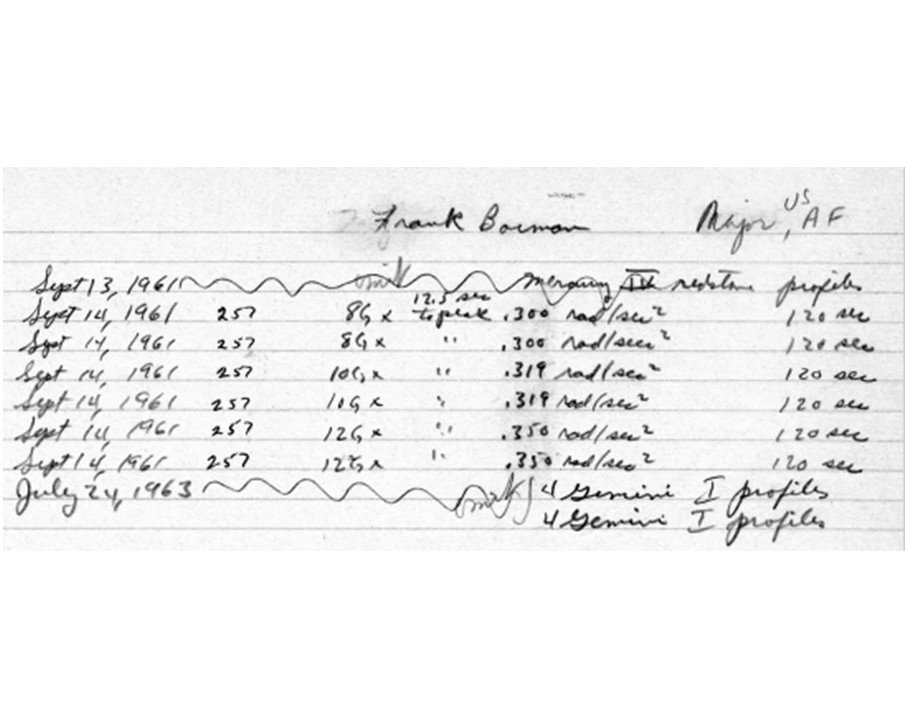 Frank Borman Major, US AF
Sept 13, 1961 omit Mercury IV redstone profiles
Sept 14, 1961 257 8G x 12.5 sec to peak .300 rad/sec² 120 sec
Sept 14, 1961 257 8G x " .300 rad/sec² 120 sec
Sept 14, 1961 257 10G x " .319 rad/sec² 120 sec
Sept 14, 1961 257 10G x " .319 rad/sec² 120 sec
Sept 14, 1961 257 12G x " .350 rad/sec² 120 sec
Sept 14, 1961 257 12G x " .350 rad/sec² 120 sec
July 24, 1963 omit 4 Gemini I profiles
4 Gemini I profiles